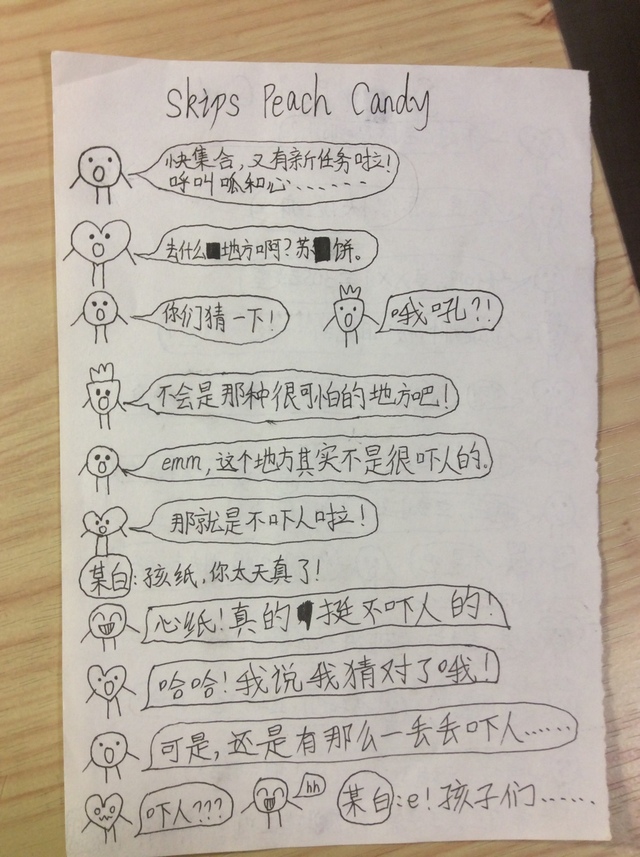 Skips Peach Candy
快集合,又有新任务啦!
呼叫呱和心......
去什么地方啊?苏饼。
你们猜一下!
哦吼?!
不会是那种很可怕的地方吧!
emm,这个地方其实不是很吓人的。
那就是不吓人啦!
某白:孩纸,你太天真了!
心纸!真的挺不吓人的!
哈哈!我说我猜对了哦!
可是,还是有那么一丢丢吓人......
吓人???
hh
某白:e!孩子们......